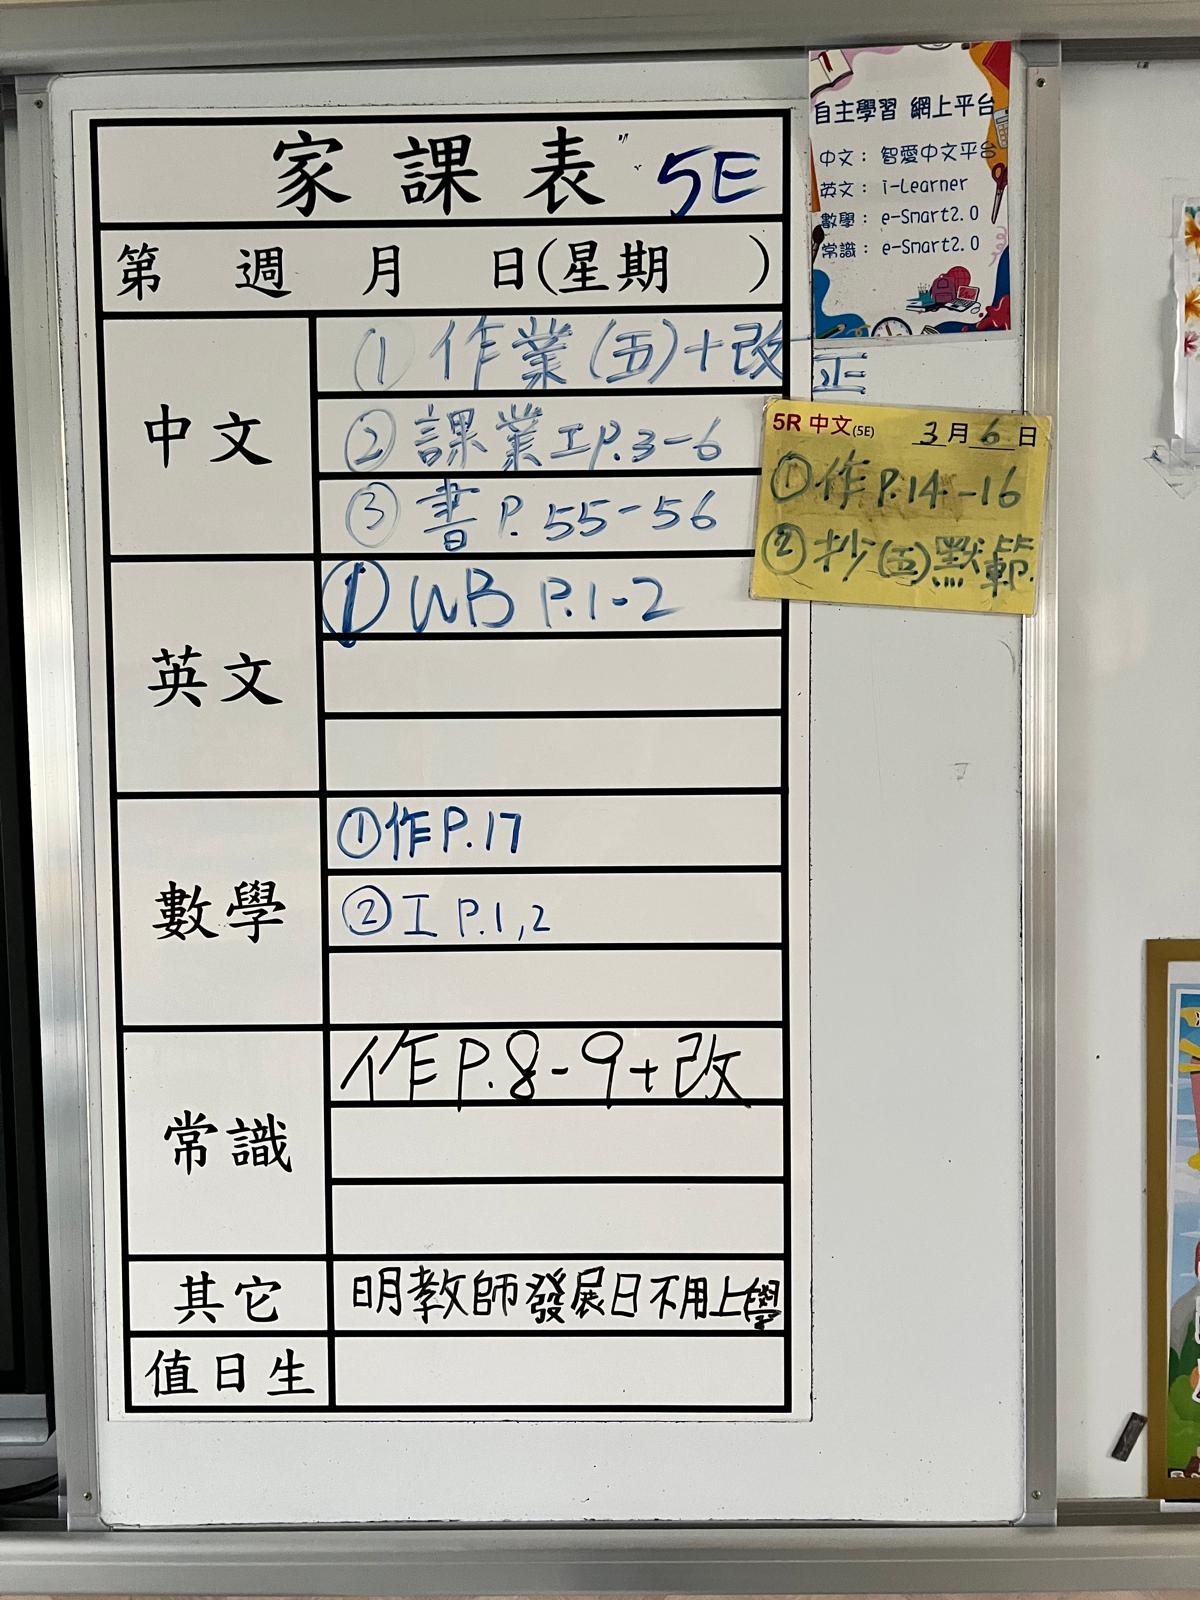 家課表 5E
第 週 月 日(星期 )
中文
① 作業(五)+改正
② 課業工P.3-6
③ 書P.55-56
英文
① WB P.1-2
數學
①作P.17
②工 P.1,2
常識
作P.8-9+改
其它
明教師發展日不用上學
值日生
自主學習 網上平台
中文： 智愛中文平台
英文： i-Learner
數學： e-Smart2.0
常識： e-Smart2.0
5R 中文(5E) 3月6日
①作P.14-16
②抄(五)默範.